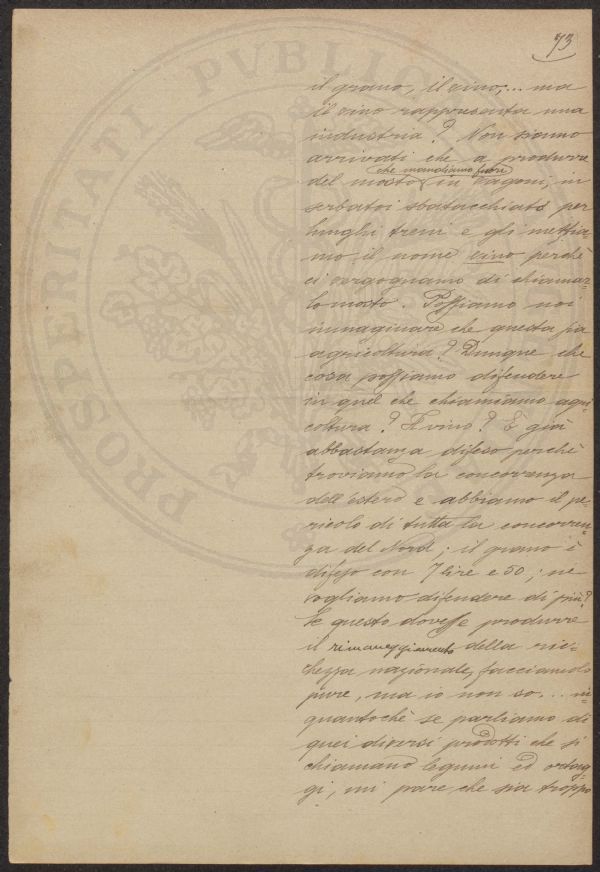 73
PROSPERITATI PUBLIC
il grano, il vino,... ma
il vino rappresenta una
industria? Non siamo
arrivati che a produrre
che mandiamo fuori
del mosto in vagoni, in
serbatoi sbatacchiati per
lunghi treni e gli mettia
mo il nome vino perchè
ci vergognamo di chiamar=
lo mosto. Possiamo noi
immaginare che questa sia
agricoltura? Dunque che
cosa possiamo difendere
in quel che chiamiamo agri
coltura? Il vino? È già
abbastanza difeso perchè
troviamo la concorrenza
dell'estero e abbiamo il pe=
ricolo di tutta la concorren
za del Nord; il grano è
difeso con 7 lire e 50; ne
vogliamo difendere di più?
Se questo dovesse produrre
il rimaneggiamento della ric=
chezza nazionale, facciamolo
pure, ma io non so... in
quantochè se parliamo di
quei diversi prodotti che si
chiamano legumi ed ortag=
gi, mi pare che sia troppo